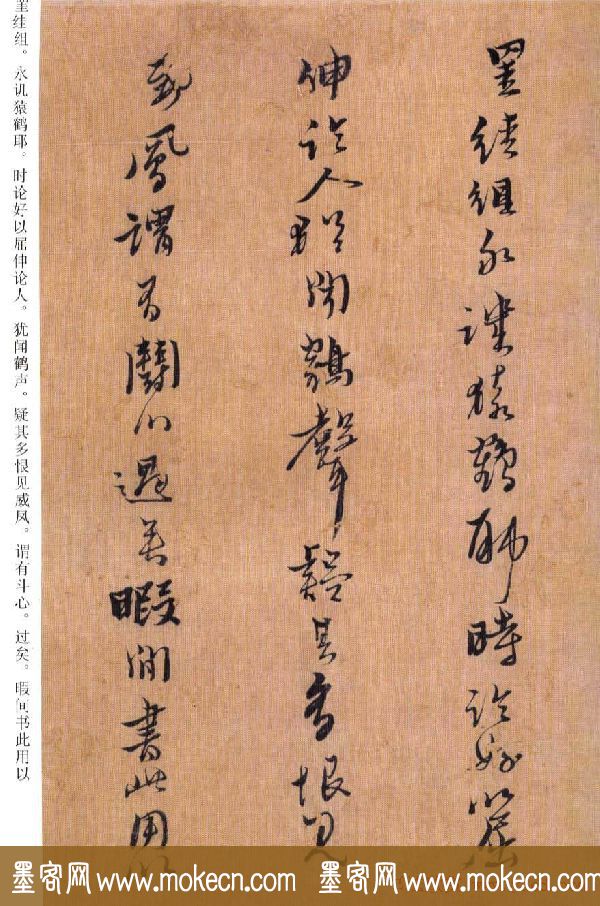 罣絓組永譏猿鶴耶時論好以屈
伸論人猶聞鶴聲疑其多恨見
威鳳謂有鬭心過矣暇間書此用以
罣絓组。永讥猿鹤耶。时论好以屈伸论人。犹闻鹤声。疑其多恨见威凤。谓有斗心。过矣。暇间书此用以
墨客网 www.mokecn.com 墨客网 www.mokecn.com